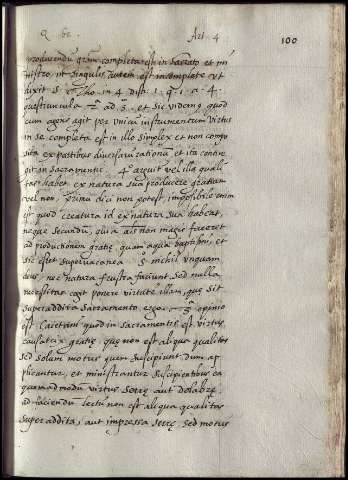 Q. 62. Art. 4. 100
producendum gram completa est in Sacrato et mi
nistro, in singulis autem est incomplete ut
dixit S. Tho. in 4 dist. 1. q. 1. a. 4.
quæstiuncula 2ª ad 3. et sic videmus quod
cum agens agit per unicum instrumentum virtus
in se completa est in illo simplex et non compo
sita ex partibus diversarum rationum et ita contin
git in Sacramentis. 4º arguit vel illa quali
tas habet ex natura sua producere gratiam
vel non. primum dici non potest, impossibile enim
est quod creatura id ex natura sua habeat,
neque secundum, quia alias non magis faceret
ad productionem gratiæ, quam aqua baptismi, et
sic esset supervacanea. nichil unquam
deus, nec natura frustra faciunt, sed nulla
necessitas cogit ponere virtutem illam, quæ sit
superaddita sacramento ergo. 3ª opinio
est Caetani quod in sacramentis est virtus
causativa gratiæ, quæ non est aliqua qualitas
sed solum motus quem suscipiunt dum ap
plicantur, et ministrantur suscipientibus ea
quemadmodum virtus serræ aut dolabræ
ad faciendum lectum non est aliqua qualitas
superaddita, aut impressa serræ, sed motus